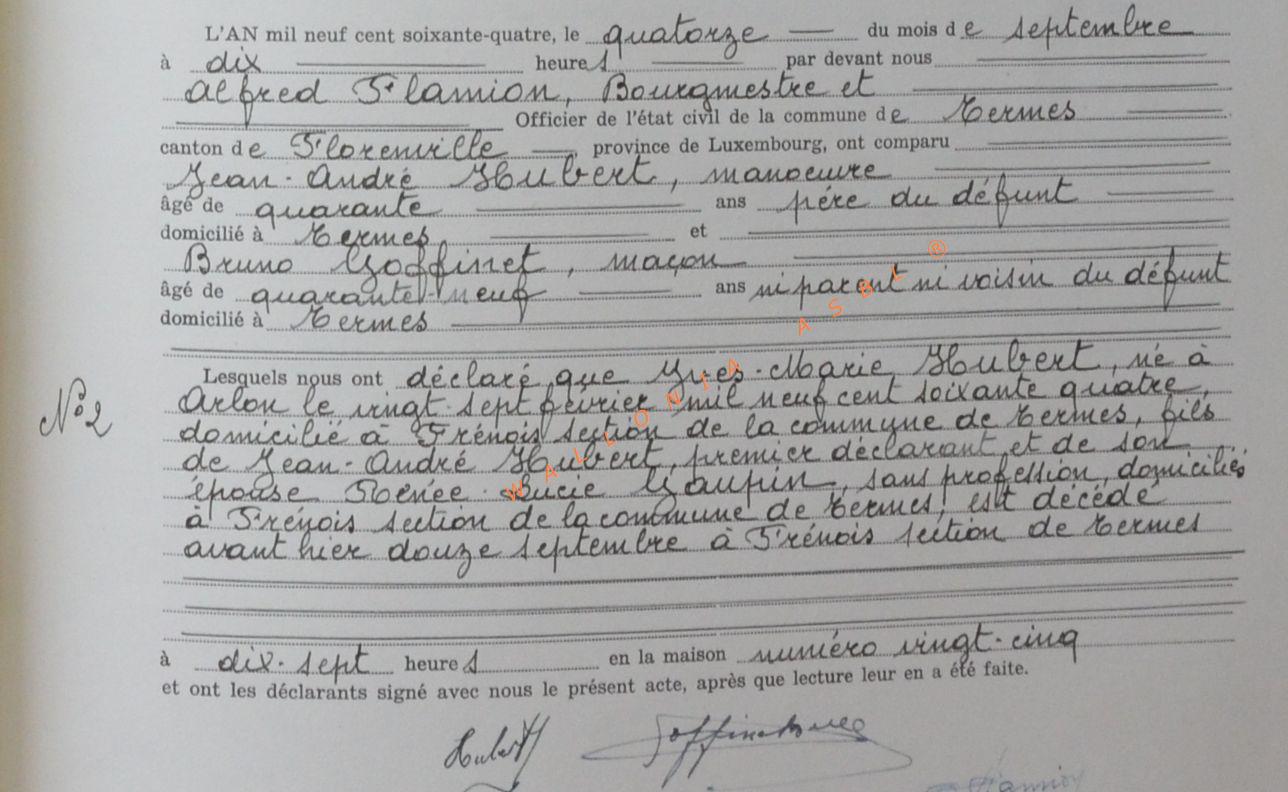 L'AN mil neuf cent soixante-quatre, le quatorze — du mois de septembre
à dix heures par devant nous
Alfred Flamion, Bourgmestre et
Officier de l'état civil de la commune de Termes
canton de Florenville, province de Luxembourg, ont comparu
Jean-André Hubert, manoeuvre
âgé de quarante ans père du défunt
domicilié à Termes et
Bruno Goffinet, maçon
âgé de quarante-neuf ans ni parent ni voisin du défunt
domicilié à Termes
Lesquels nous ont déclaré que Yves-Marie Hubert, né à
Arlon le vingt-sept février mil neuf cent soixante quatre,
N°2
domicilié à Frénois section de la commune de Termes, fils
de Jean-André Hubert, premier déclarant et de son
épouse Renée-Lucie Gaupin, sans profession, domiciliés
à Frénois section de la commune de Termes, est décédé
avant hier douze septembre à Frénois section de Termes
à dix-sept heures en la maison numéro vingt-cinq
et ont les déclarants signé avec nous le présent acte, après que lecture leur en a été faite.
WALLONIA ASBL ®
Hubert